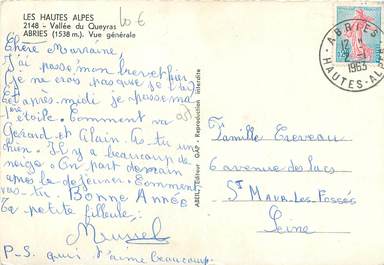 LES HAUTES ALPES
2148 - Vallée du Queyras
ABRIÈS (1538 m.). Vue générale
10 €
Chère Marraine
J'ai passé mon brevet hier
Je ne crois pas que je l'ai
Cet après-midi je passe ma
1ère étoile. Comment va
Gérard et Alain. As-tu un
chien. Il y a beaucoup de
neige. On part demain
après le déjeuner. Comment
vas-tu. BONNE ANNÉE
Ta petite filleule,
Muriel
P-S qui t'aime beaucoup
ABEIL, Editeur GAP - Reproduction interdite
ABRIES
1963
HAUTES-ALPES
Famille
6 avenue des lacs
ST MAUR-LES-FOSSÉS
Seine